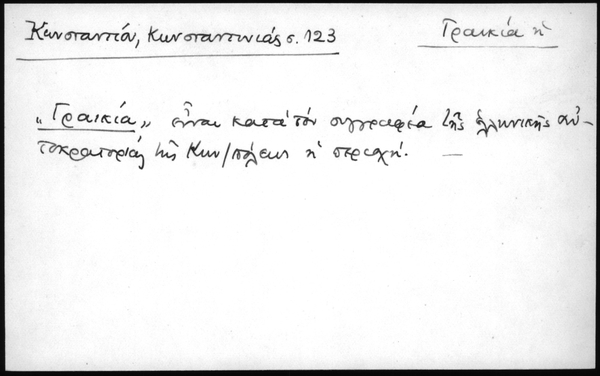 Κωνσταντίου, Κωνσταντινιάς σ. 123
Γραικία ἡ
„Γραικία„ εἶναι κατὰ τὸν συγγραφέα τῆς ἑλληνικῆς αὐ-
τοκρατορίας τῆς Κων/πόλεως ἡ περιοχή. —